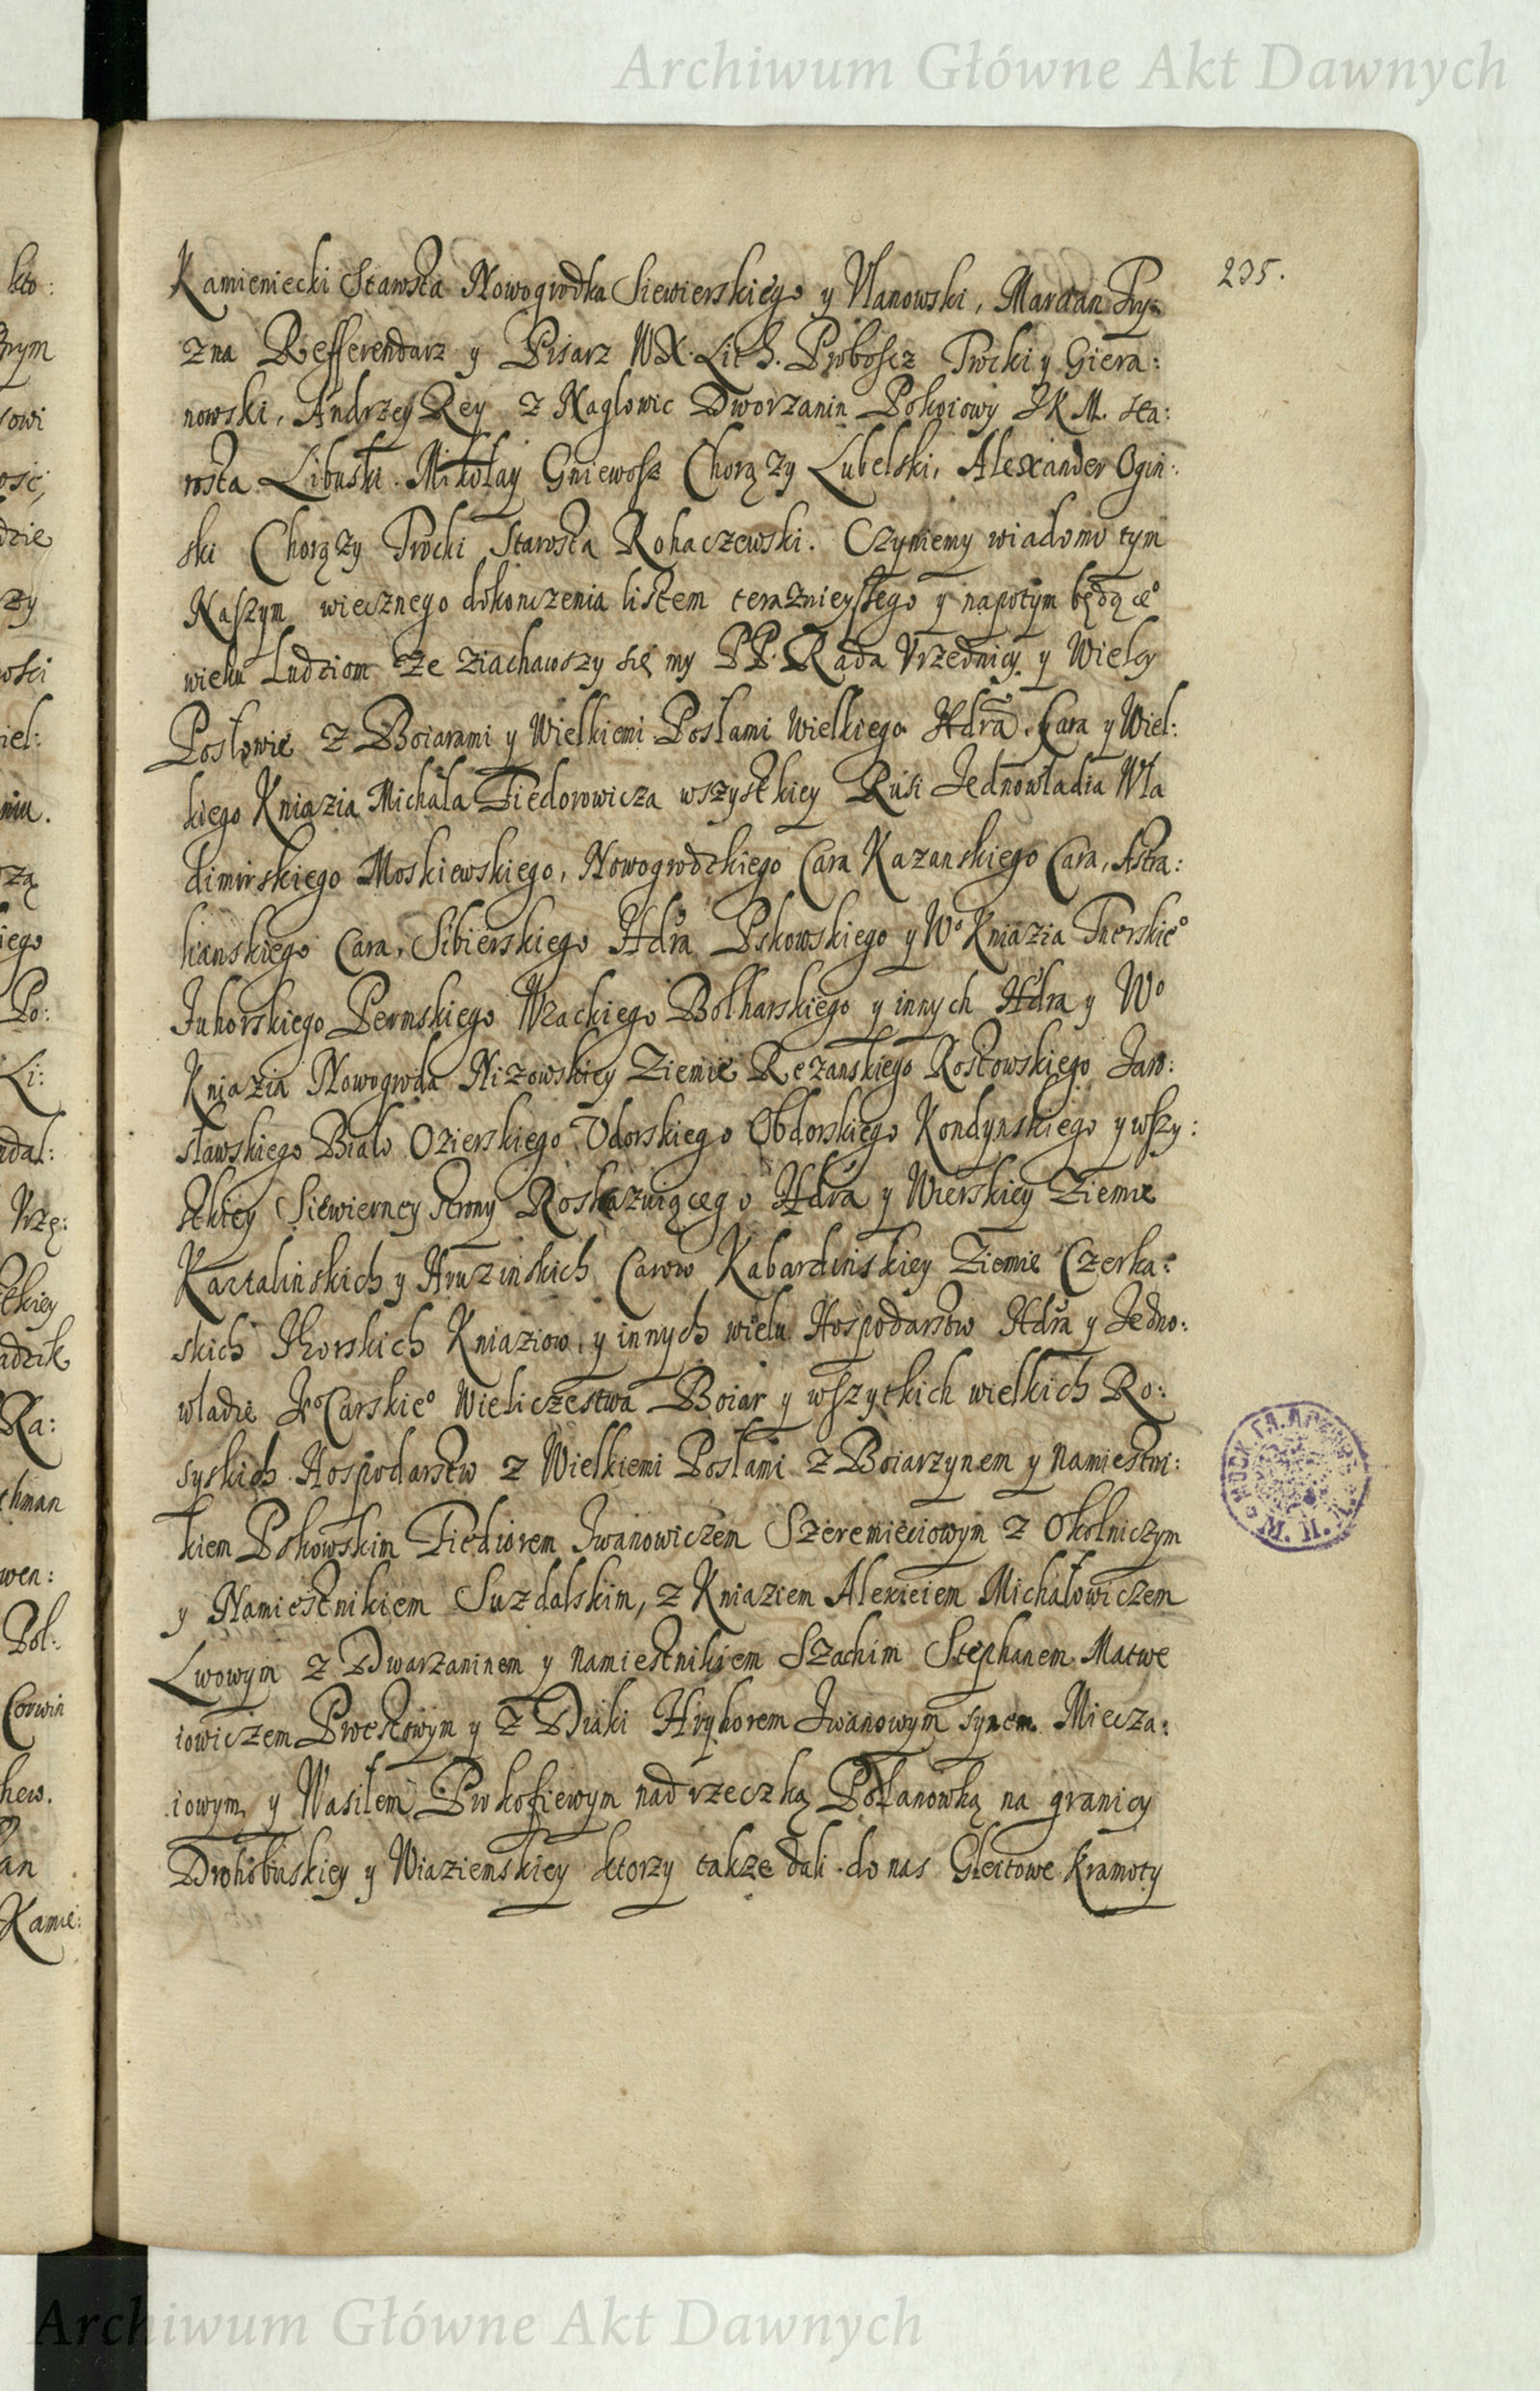 Archiwum Główne Akt Dawnych
235.
Kamieniecki Starosta Nowogrodka Siewierskiego y Ulanowski, Marcian Try:
zna Refferendarz y Pisarz WX. Lith. Proboscz Trocki y Giera:
nowski, Andrzey Rey z Naglowic Dworzanin Pokoiowy JK M. Sta:
rosta Libuski. Mikołay Gniewosz Chorąży Lubelski, Alexander Ogin:
ski Chorąży Trocki Starosta Rohaczewski. Czyniemy wiadomo tym
Naszym wiecznego dokonczenia listem teraznieyszego y napotym będąceo
wieku Ludziom że ziachawszy się my PP. Rada Vrzednicy y Wielcy
Posłowie z Boiarami y Wielkiemi Posłami Wielkiego Hdra. Cara y Wiel:
kiego Kniazia Michała Fiedorowicza wszystkiey Rusi Jednowładia Wła
dimirskiego Moskiewskiego, Nowogrodzkiego Cara Kazanskiego Cara, Astra:
hanskiego Cara, Sibierskiego Hdra Pskowskiego y Wo Kniazia Twerskieo
Juhorskiego Permskiego Wiackiego Bolharskiego y innych Hdra y Wo
Kniazia Nowogroda Nizowskiey Ziemie Rezanskiego Rostowskiego Jaro:
sławskiego Biało Ozierskiego Udorskiego Obdorskiego Kondynskiego y wszy:
stkiey Siewierney strony Roskazuiącego Hdra y Wierskiey Ziemie
Kartalinskich y Hruzinskich Carow Kabardinskiey Ziemie Czerka:
skich Ihorskich Kniaziow y innych wielu Hospodarstw Hdra y Jedno:
władze Jo Carskieo Wieliczestwa Boiar y wszytkich wielkich Ro:
syskich Hospodarstw z Wielkiemi Posłami z Boiarzynem y Namiestni:
kiem Pskowskim Fiediorem Jwanowiczem Szeremieciowym z Okolniczym
y Namiestnikiem Suzdalskim, z Kniaziem Alexieiem Michałowiczem
Lwowym z Dwarzaninem y Namiestnikiem Szachim Stephanem Matwe
iowiczem Proestowym y z Diaki Hryhorem Jwanowym synem Niecza:
iowym y Wasilem Prokofiewym nad rzeczką Polanowką na granicy
Drohobuskiey y Wiaziemskiey ktorzy takze dali do nas Gleitowe Kramoty
Archiwum Główne Akt Dawnych